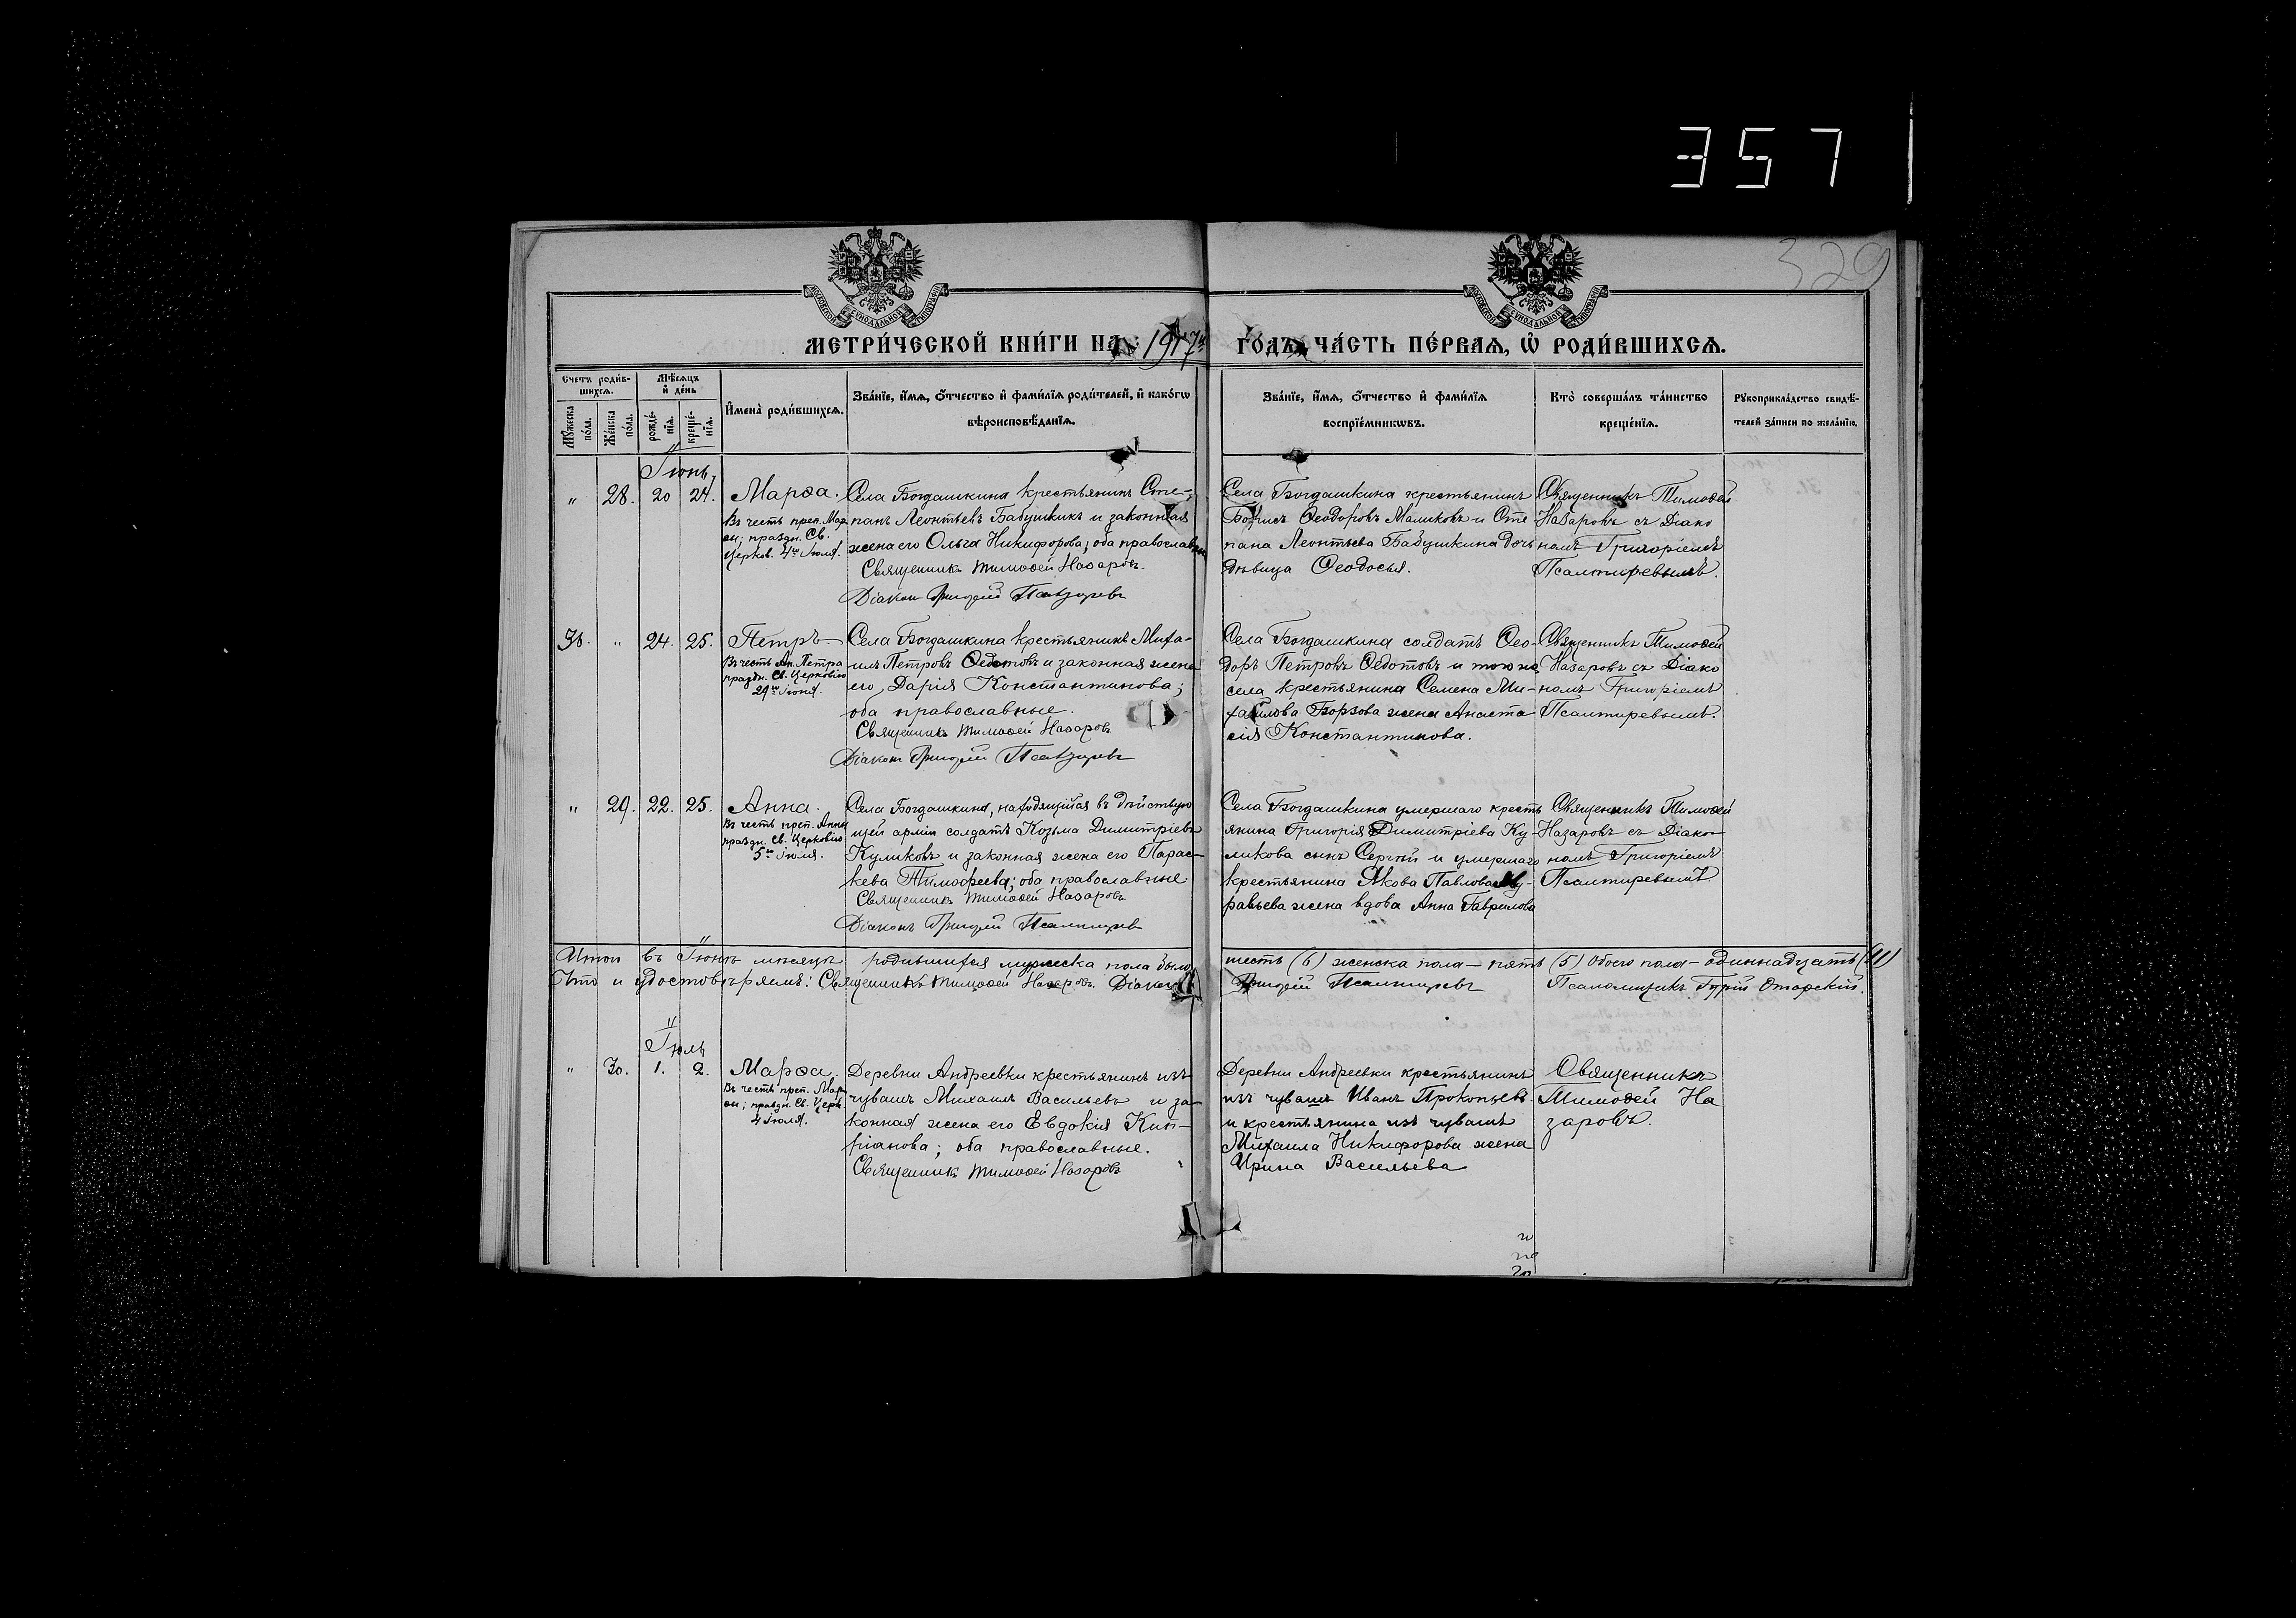 357
329
МОСКОВСКОЙ СѴНОДАЛЬНОЙ ТИПОГРАФІИ
МОСКОВСКОЙ СѴНОДАЛЬНОЙ ТИПОГРАФІИ
МЕТРИ́ЧЕСКОЙ КНИ́ГИ НА 1917й ГОДЪ, ЧА́СТЬ ПЕ́РВАѦ, Ѡ҆ РОДИ́ВШИХСѦ.
Счетъ роди́в-
шихсѧ.
Мꙋ́жеска
по́ла.
Же́нска
по́ла.
Мѣ́сѧцъ
и҆ де́нь
рожде́-
нїѧ.
креще́-
нїѧ.
И҆мена̀ роди́вшихсѧ.
Зва́нїе, и҆́мѧ, ѻ҆́тчество и҆ фами́лїѧ роди́телей, и҆ како́гѡ
вѣроисповѣ́данїѧ.
Зва́нїе, и҆́мѧ, ѻ҆́тчество и҆ фами́лїѧ
воспрїе́мникѡвъ.
Кто̀ соверша́лъ та́инство
креще́нїѧ.
Рꙋкоприкла́дство свидѣ́-
телей за́писи по жела́нїю.
Іюнь
" 28. 20 24. Марѳа.
Въ честь преп. Мар
ѳы; праздн. Св.
Церков. 4го Іюля.
Села Богдашкина крестьянинъ Сте-
панъ Леонтьевъ Бабушкинъ и законная
жена его Ольга Никифорова; оба православны
Священникъ Тимоѳей Назаровъ.
Діаконъ Григорій Псалтыревъ
Села Богдашкина крестьянинъ
Борисъ Ѳеодоровъ Маликовъ и Сте
пана Леонтьева Бабушкина дочь
дѣвица Ѳеодосья.
Священникъ Тимоѳей
Назаровъ съ Діако
номъ Григоріемъ
Псалтыревымъ.
38. " 24. 25. Петръ
Въ честь Ап. Петра
праздн. Св. Церковію
29го Іюня.
Села Богдашкина крестьянинъ Миха-
илъ Петровъ Ѳедотовъ и законная жена
его, Дарія Константинова;
оба православные.
Священникъ Тимоѳей Назаровъ
Діаконъ Григорій Псалтыревъ
Села Богдашкина солдатъ Ѳео-
доръ Петровъ Ѳедотовъ и того же
села крестьянина Семена Ми-
хайлова Борзова жена Анаста
сія Константинова.
Священникъ Тимоѳей
Назаровъ съ Діако
номъ Григоріемъ
Псалтыревымъ.
" 29. 22. 25. Анна.
Въ честь преп. Анны
праздн. Св. Церковію
5го Іюля.
Села Богдашкина, находящійся въ дѣйствую
щей арміи солдатъ Козьма Димитріевъ
Куликовъ и законная жена его Парас-
кева Тимоѳеева; оба православные
Священникъ Тимоѳей Назаровъ
Діаконъ Григорій Псалтыревъ
Села Богдашкина умершаго кресть
янина Григорія Димитріева Ку-
ликова сынъ Сергѣй и умершаго
крестьянина Якова Павлова Му-
равьева жена вдова Анна Гаврилова
Священникъ Тимоѳей
Назаровъ съ Діако-
номъ Григоріемъ
Псалтыревымъ.
Итого въ Іюнѣ мѣсяцѣ родившихся мужеска пола было шесть (6) женска пола – пять (5) Обоего пола – одиннадцать (11)
Что и удостовѣряемъ: Священникъ Тимоѳей Назаровъ. Діаконъ Григорій Псалтыревъ Псаломщикъ Гурій Отарскій.
Іюль
" 30. 1. 2. Марѳа.
Въ честь преп. Мар
ѳы; праздн. Св. Церк.
4 Іюля.
Деревни Андреевки крестьянинъ изъ
чувашъ Михаилъ Васильевъ и за-
конная жена его Евдокія Кип-
ріанова; оба православные.
Священникъ Тимоѳей Назаровъ
Деревни Андреевки крестьянинъ
изъ чувашъ Иванъ Прокопьевъ
и крестьянина изъ чувашъ
Михаила Никифорова жена
Ирина Васильева
Священникъ
Тимоѳей На
заровъ.